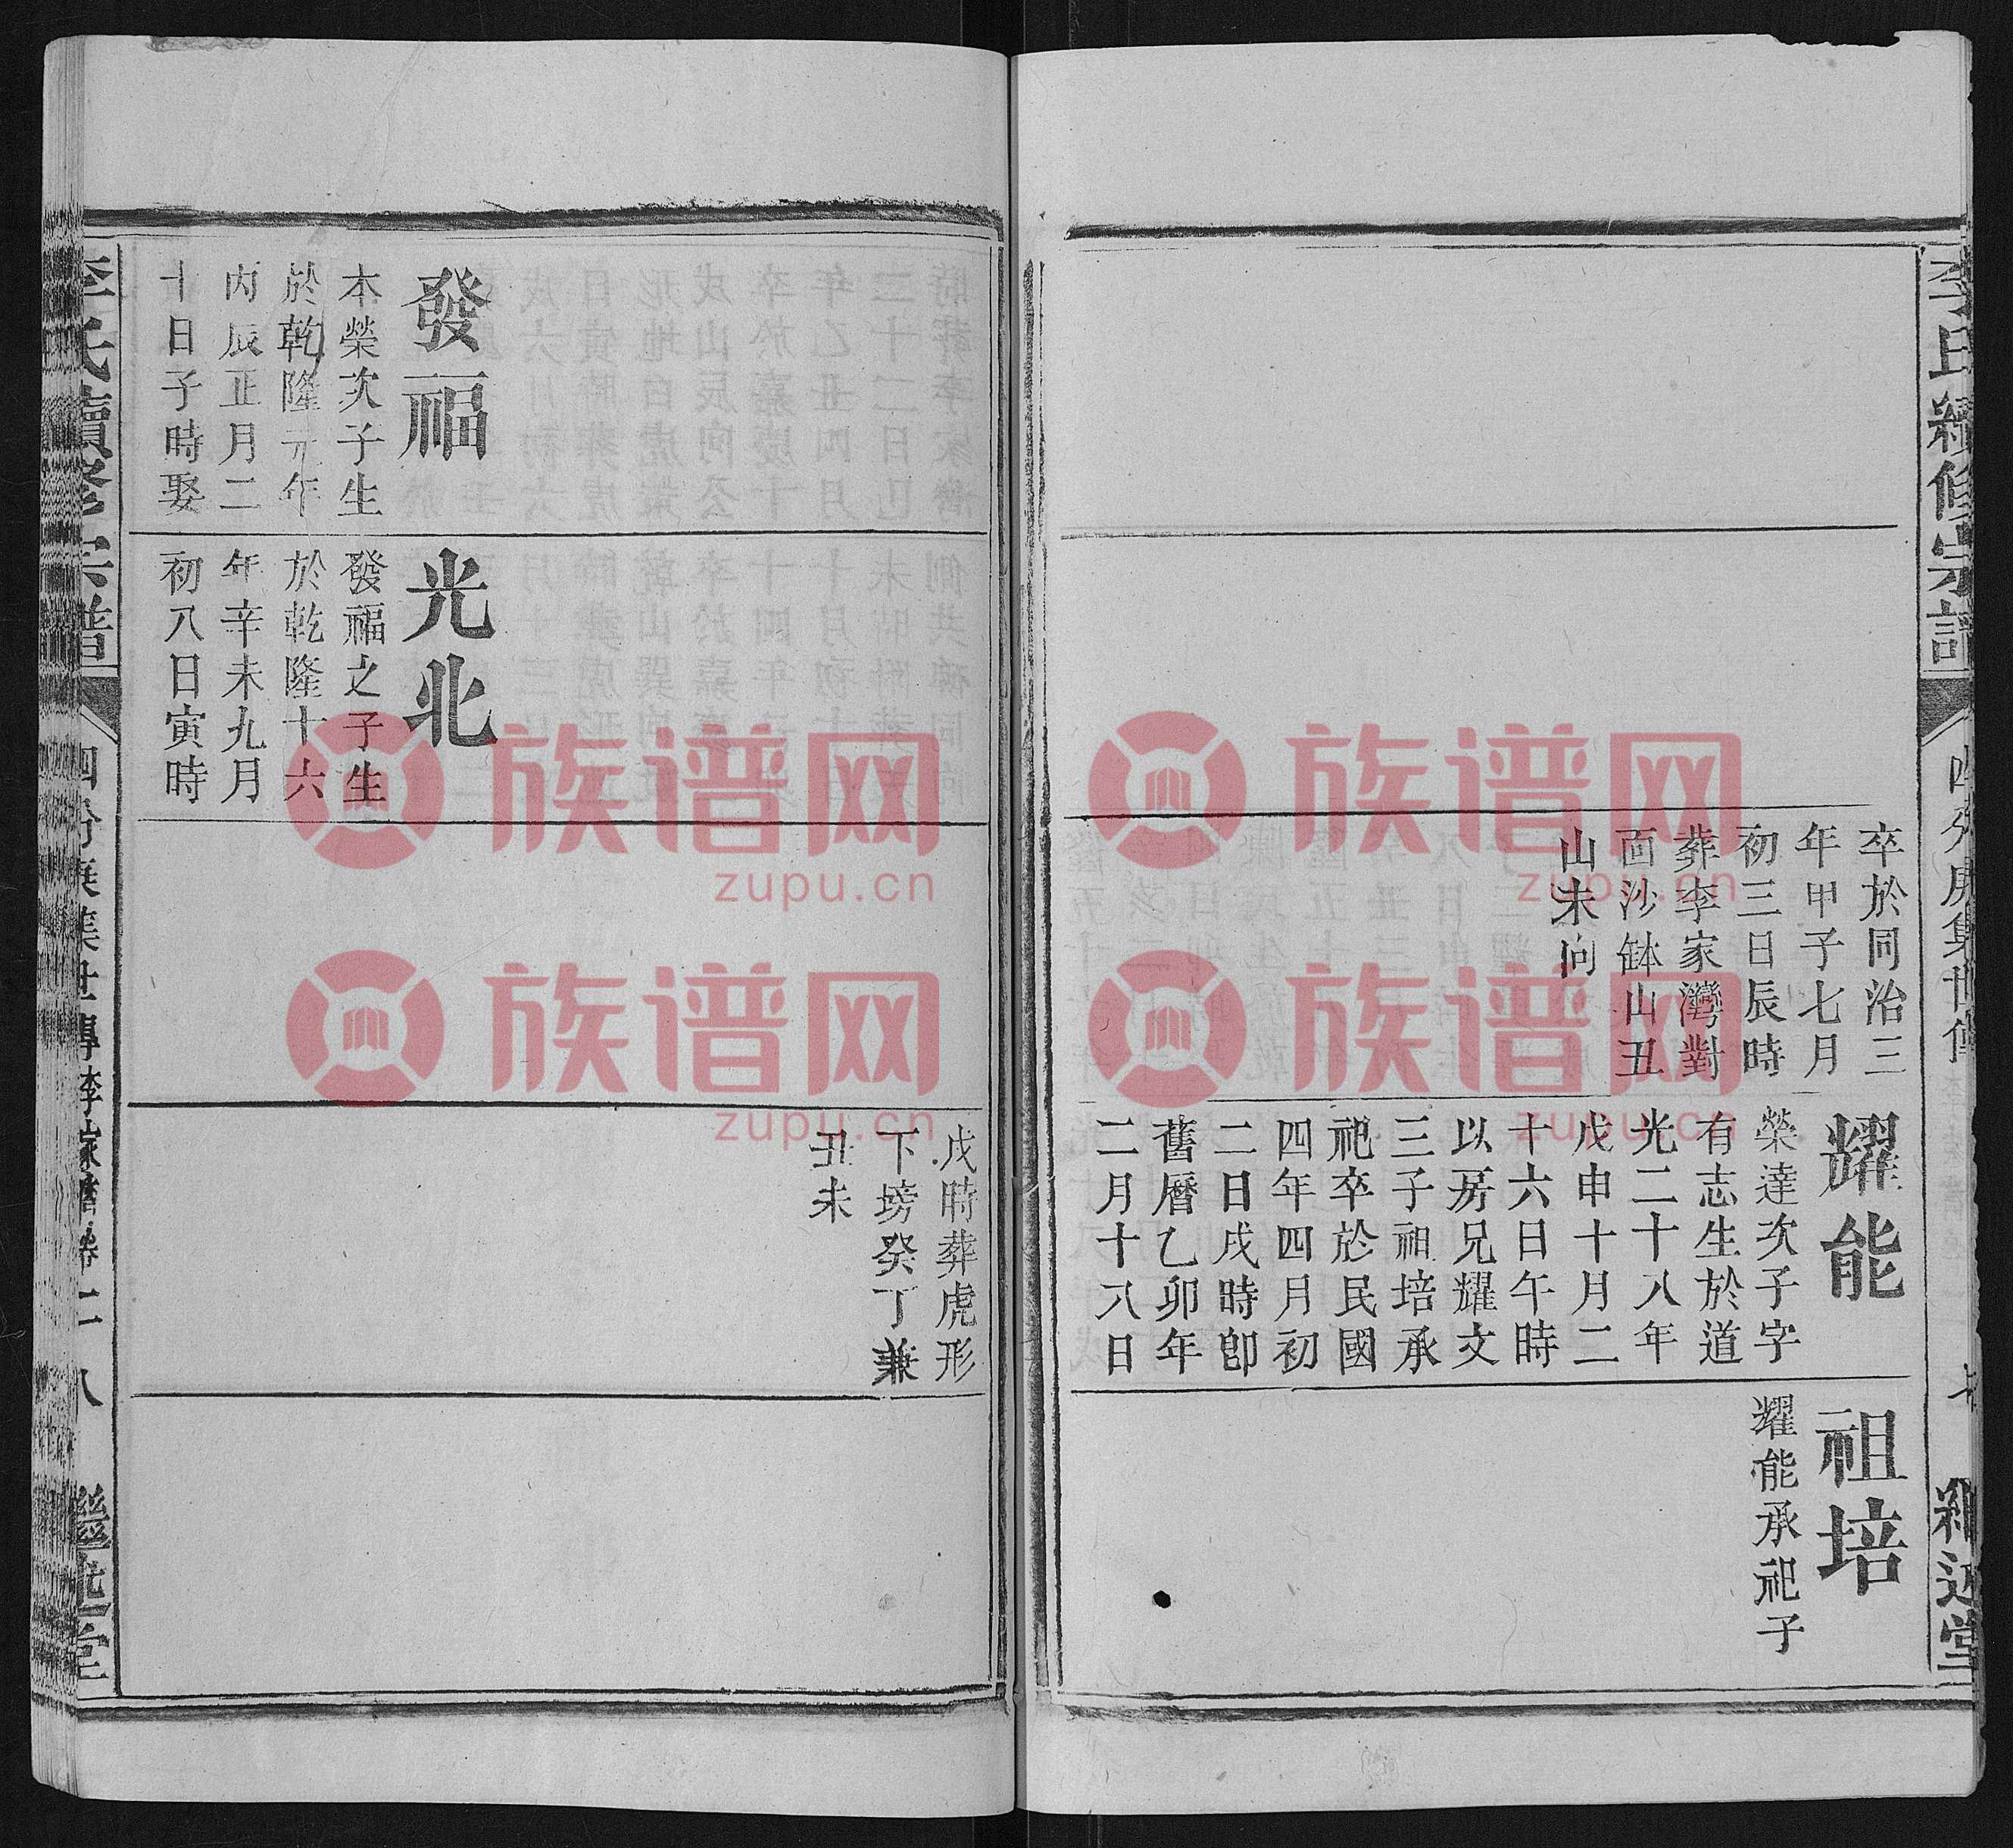 李氏續修宗譜
卒於同治三
年甲子七月
初三日辰時
葬李家灣對
面沙缽山丑
山未向
耀能
榮達次子字
有志生於道
光二十八年
戊申十月二
十六日午時
以房兄耀文
三子祖培承
祀卒於民國
四年四月初
二日戌時卽
舊曆乙卯年
二月十八日
祖培
耀能承祀子
戌時葬虎形
下塝癸丁兼
丑未
發福
本榮次子生
於乾隆元年
丙辰正月二
十日子時娶
光北
發福之子生
於乾隆十六
年辛未九月
初八日寅時
李氏續修宗譜
八
族谱网
zupu.cn
族谱网
zupu.cn
族谱网
zupu.cn
族谱网
zupu.cn